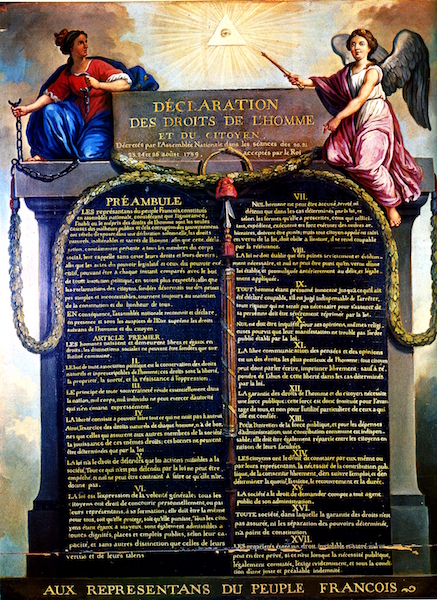 DÉCLARATION
DES DROITS DE L'HOMME
ET DU CITOYEN,
Décrétés par l'Assemblée Nationale dans les séances des 20, 21
23, 24 et 26 août 1789, acceptés par le Roi
PRÉAMBULE
LES représentans du peuple François, constitués
en assemblée nationale, considérant que l'ignorance,
l'oubli ou le mépris des droits de l'homme sont les seules
causes des malheurs publics et de la corruption des gouvernemens
ont résolu d'exposer dans une déclaration solemnelle, les droits
naturels, inaliénables et sacrés de l'homme; afin que cette déclaration,
constamment présente à tous les membres du corps
social, leur rappelle sans cesse leurs droits et leurs devoirs;
afin que les actes du pouvoir législatif et ceux du pouvoir exécutif,
pouvant être à chaque instant comparés avec le but
de toute institution politique, en soient plus respectés; afin que
les réclamations des citoyens, fondées désormais sur des principes
simples et incontestables, tournent toujours au maintien
de la constitution et du bonheur de tous.
EN conséquence, l'assemblée nationale reconnoit et déclare,
en présence et sous les auspices de l'Etre suprême les droits
suivans de l'homme et du citoyen.
ARTICLE PREMIER.
LES hommes naissent et demeurent libres et égaux en
droits, les distinctions sociales ne peuvent être fondées que sur
l'utilité commune.
II.
LE but de toute association politique est la conservation des droits
naturels et imprescriptibles de l'homme; ces droits sont la liberté,
la propriété, la sureté, et la résistance à l'oppression.
III.
LE principe de toute souveraineté réside essentiellement dans
la nation, nul corps, nul individu ne peut exercer d'autorité
qui n'en émane expressement.
IV.
LA liberté consiste à pouvoir faire tout ce qui ne nuit pas à autrui
Ainsi, l'exercice des droits naturels de chaque homme, n'a de bornes
que celles qui assurent aux autres membres de la société
la jouissance de ces mêmes droits; ces bornes ne peuvent
être déterminées que par la loi
V.
LA loi n'a le droit de défendre que les actions nuisibles à la
société. Tout ce qui n'est pas défendu par la loi ne peut être
empêché, et nul ne peut être contraint à faire ce qu'elle n'ordonne
pas.
VI.
LA loi est l'expression de la volonté générale; tous les
citoyens ont droit de concourir personnellement, ou par
leurs représentans, à sa formation; elle doit être la même
pour tous, soit qu'elle protege, soit qu'elle punisse. Tous les citoyens
étant égaux à ses yeux, sont également admissibles à
toutes dignités, places et emplois publics, selon leur capacité,
et sans autres distinction que celles de leurs
vertus et de leurs talens
VII.
NUL homme ne peut être accusé, arrêté ni
détenu que dans les cas déterminés par la loi, et
selon les formes qu'elle a prescrites, ceux qui sollicitent,
expédient, exécutent ou font exécuter des ordres arbitraires,
doivent être punis; mais tout citoyen appelé ou saisi
en vertu de la loi, doit obéir à l'instant, il se rend coupable
par la résistance.
VIII.
LA loi ne doit établir que des peines strictement et évidemment
nécessaires, et nul ne peut être puni qu'en vertu d'une
loi établie, et promulguée antérieurement au délit, et légalement
appliquée.
IX.
TOUT homme étant présumé innocent jusqu'à ce qu'il ait
été déclaré coupable, s'il est jugé indispensable de l'arrêter,
toute rigueur qui ne seroit pas nécessaire pour s'assurer de
sa personne doit être sévèrement réprimée par la loi.
X.
NUL ne doit être inquiété pour ses opinions, mêmes religieuses
pourvu que leur manifestation ne trouble pas l'ordre
public établi par la loi.
XI.
LA libre communication des pensées et des opinions
est un des droits les plus précieux de l'homme; tout citoyen
peut donc parler, écrire, imprimer librement, sauf à répondre
de l'abus de cette liberté dans les cas déterminés
par la loi.
XII.
LA garantie des droits de l'homme et du citoyen nécessite
une force publique; cette force est donc instituée pour l'avantage
de tous, et non pour l'utilité particulière de ceux à qui
elle est confiée.
XIII.
POUR l'entretien de la force publique, et pour les dépenses
d'administration, une contribution commune est indispensable;
elle doit être également répartie entre les citoyens en
raison de leurs facultés.
XIV.
LES citoyens ont le droit de constater par eux même ou
par leurs représentans, la nécessité de la contribution publique,
de la consentir librement, d'en suivre l'emploi, et d'en
déterminer la quotité, l'assiette, le recouvrement et la durée.
XV.
LA société a le droit de demander compte à tout agent
public de son administration.
XVI.
TOUTE société, dans laquelle la garantie des droits n'est
pas assurée, ni la séparation des pouvoirs déterminée,
n'a point de constitution.
XVII.
LES propriétés étant un droit inviolable et sacré, nul ne
peut en être privé, si ce n'est lorsque la nécessité publique,
légalement constatée, l'exige évidemment, et sous la condition
d'une juste et préalable indemnité.
AUX REPRESENTANS DU PEUPLE FRANCOIS